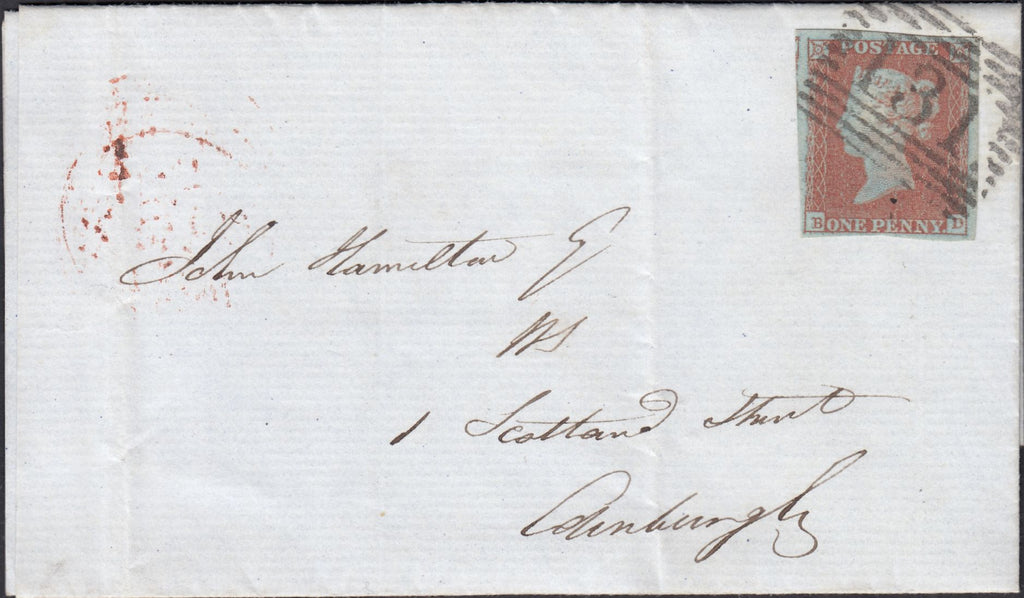 POSTAGE
131
B ONE PENNY D
John Hamilton Esq
WS
1 Scotland Street
Edinburgh